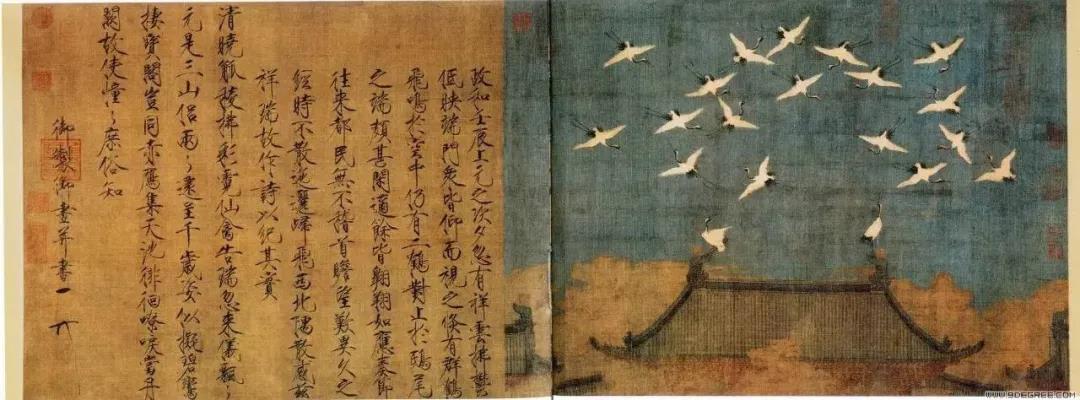 政和壬辰上元之次夕忽有祥雲拂鬱
低映端門眾皆仰而視之倏有群鶴
飛鳴於空中仍有二鶴對止於鴟尾
之端頗甚閑適餘皆翱翔如應奏節
往來都民無不稽首瞻望歎異久之
經時不散迤邐歸飛西北隅散感茲
祥瑞故作詩以紀其實
清曉觚稜拂彩霓仙禽告瑞忽來儀飄〻
元是三山侶兩〻還呈千歲姿似擬碧鸞
棲寶閣豈同赤鴈集天池徘徊嘹唳當丹
闕故使憧〻庶俗知
御製御畫并書
WWW.9DEGREE.COM